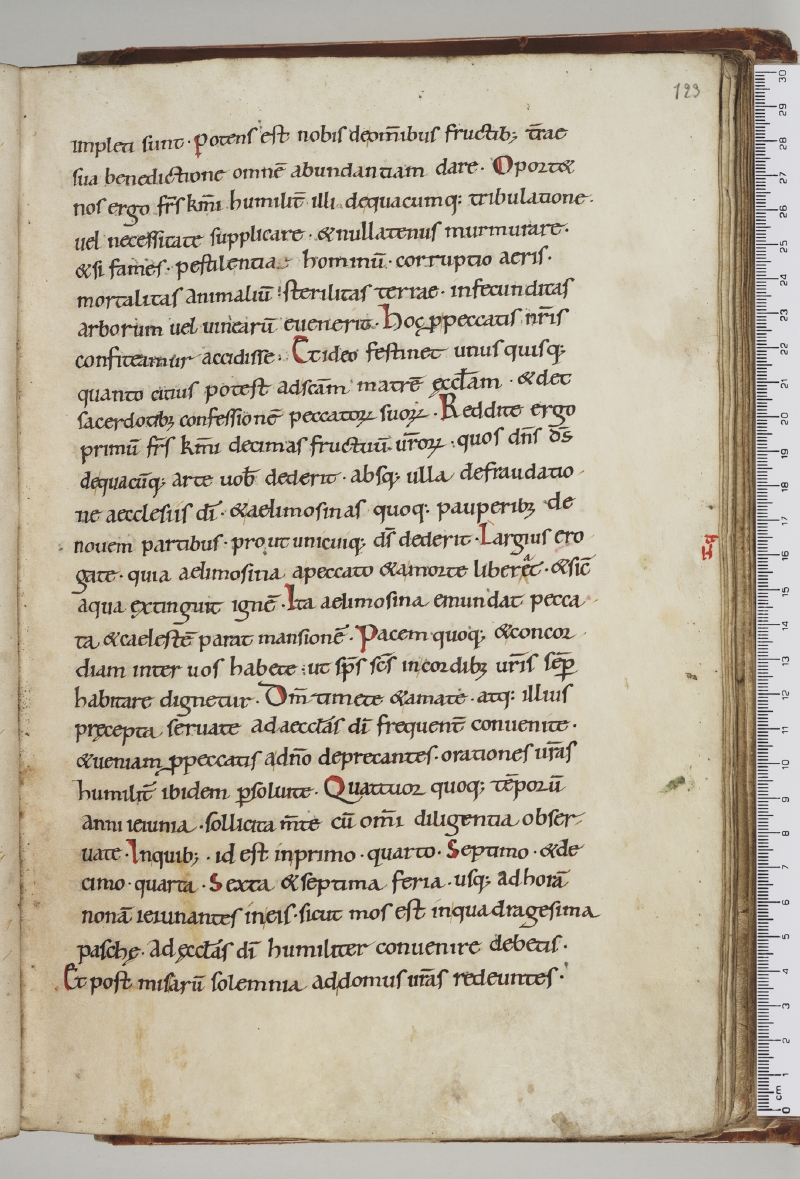 123
impleti sunt · Potens est nobis deom̄ibus fructib; t̄rae
sua benedictione omnē abundantiam dare · Oport&
nos ergo fr̄s km̄i humilit̄ illi dequacumq; tribulatione ·
uel necessitate supplicare · &nullatenus murmurare ·
&si fames · pestilentia · hominū · corruptio aeris ·
mortalitas animaliū · sterilitas terrae · infecunditas
arborum uel uinearū euenerit · Hoc ꝓpeccatis nr̄is
confiteamur accidisse · Et ideo festinet unus quisq;
quanto citius potest adscām matrē ęccl̄am · &det
sacerdotib; confessionē peccatoꝝ suoꝝ · Reddite ergo
primū fr̄s km̄i decimas fructuū ur̄oꝝ · quos dn̄s ds̄
dequacūq; arte uob̄ dederit · absq; ulla defraudatio
ne aecclesiis dī · &aelimosinas quoq; pauperib; de
nouem partibus · prout unicuiq; ds̄ dederit · Largius ero
gate · quia aelimosina apeccato &amorte liberet · &sic̄
aqua extinguit ignē · Ita aelimosina emundat pecca
ta &caelestē parat mansionē · Pacem quoq; &concor
diam inter uos habete · ut sp̄s sc̄s incordib; ur̄is sēꝑ
habitare dignetur · Dm̄ timete &amate · atq; illius
pręcepta seruate adaeccl̄as dī frequent̄ conuenite ·
&ueniam ꝓpeccatis adn̄o deprecantes · orationes ur̄as
humilit̄ ibidem ꝑsoluite · Quattuor quoq; tēporū
anni ieiunia · sollicita m̄te cū om̄i diligentia obser
uate · Inquib; · id est inprimo · quarto · Septimo · &de
cimo · quarta · Sexta &septima feria · usq; adhorā
nonā ieiunantes ineis · sicut mos est inquadragesima
paschę · Ad ęccl̄as dī humiliter conuenire debetis ·
Et post misarū solemnia addomus ur̄as redeuntes ·